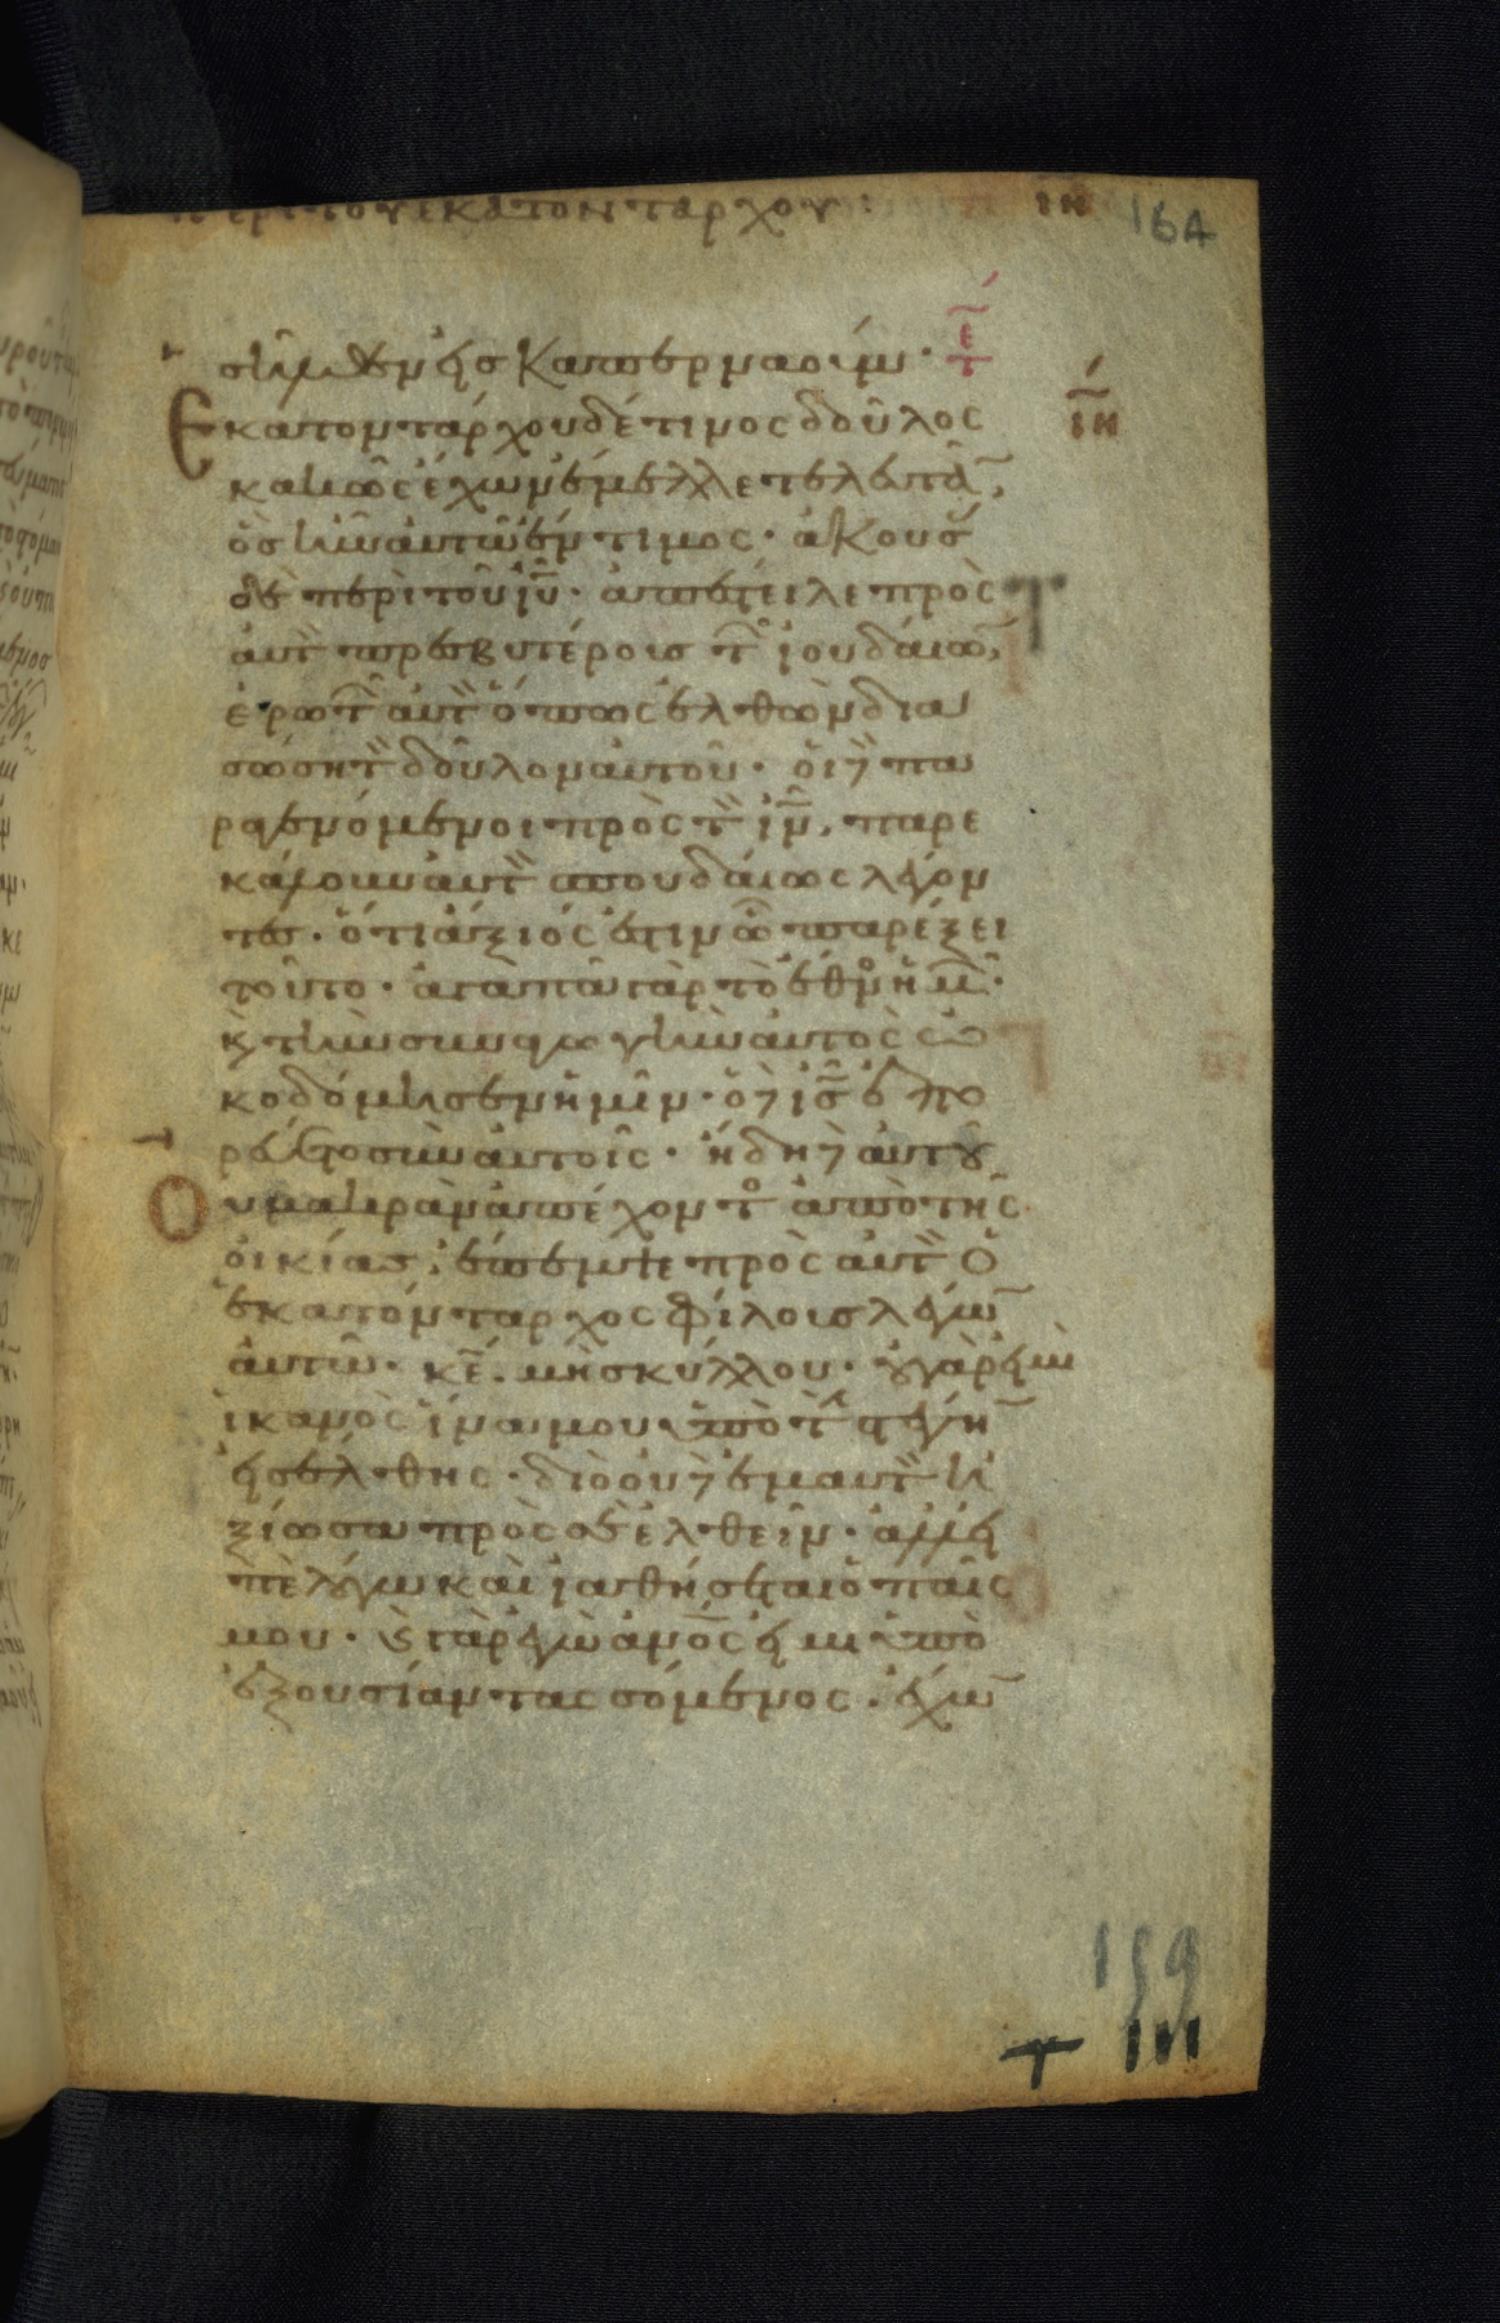 περι του εκατονταρχου: ιη 164
σῆλθεν εἰς Καπερναούμ. ε τ
Ἑκατοντάρχου δέ τινος δοῦλος ιη
κακῶς ἔχων ἔμελλε τελευτᾶ͂,
ὃς ἦν αὐτῶ ἔντιμος. ἀκούσ
δὲ περὶ τοῦ ιῦ. ἀπέστειλε πρὸς
αὐτ πρεσβυτέρους τ ἰουδαίῶ,
ἐρωτ αὐτ ὅπως ἐλθὼν δια
σώση τ δοῦλον αὐτοῦ. οἱ δὲ πα
ραγενόμενοι πρὸς τ ιν, παρε
κάλουν αὐτ σπουδαίως λέγον
τες. ὅτι ἄξιός ἐστιν ῶ παρέξει
τοῦτο. ἀγαπᾶ γὰρ τὸ ἔθν ἡμ.
κ τὴν συναγωγὴν αὐτὸς ὠ
κοδόμησεν ἡμῖν. ὁ δὲ ις ἐπο
ρεύετο σὺν αὐτοῖς. ἤδη δὲ αὐτοῦ
Ου μακρὰν ἀπέχοντ ἀπὸ τῆς
οἰκίας, ἔπεμψε πρὸς αὐτ ὁ
ἑκατόνταρχος φίλους λέγῶ
αὐτῶ. κε. μὴ σκύλλου. οὐ γάρ εἰμι
ἱκανὸς ἵνα μου ὑπὸ τ στέγῆ
εἰσέλθης. διὸ οὐδὲ ἐμαυτ ἠ
ξίωσα πρὸς σὲ ἐλθεῖν. ἀλλὰ εἰ
πὲ λόγω καὶ ἰαθήσεται ὁ παῖς
μου. κ γὰρ ἐγὼ ανος εἰμι ὑπὸ
ἐξουσίαν τασσόμενος. ἔχῶ
159
III